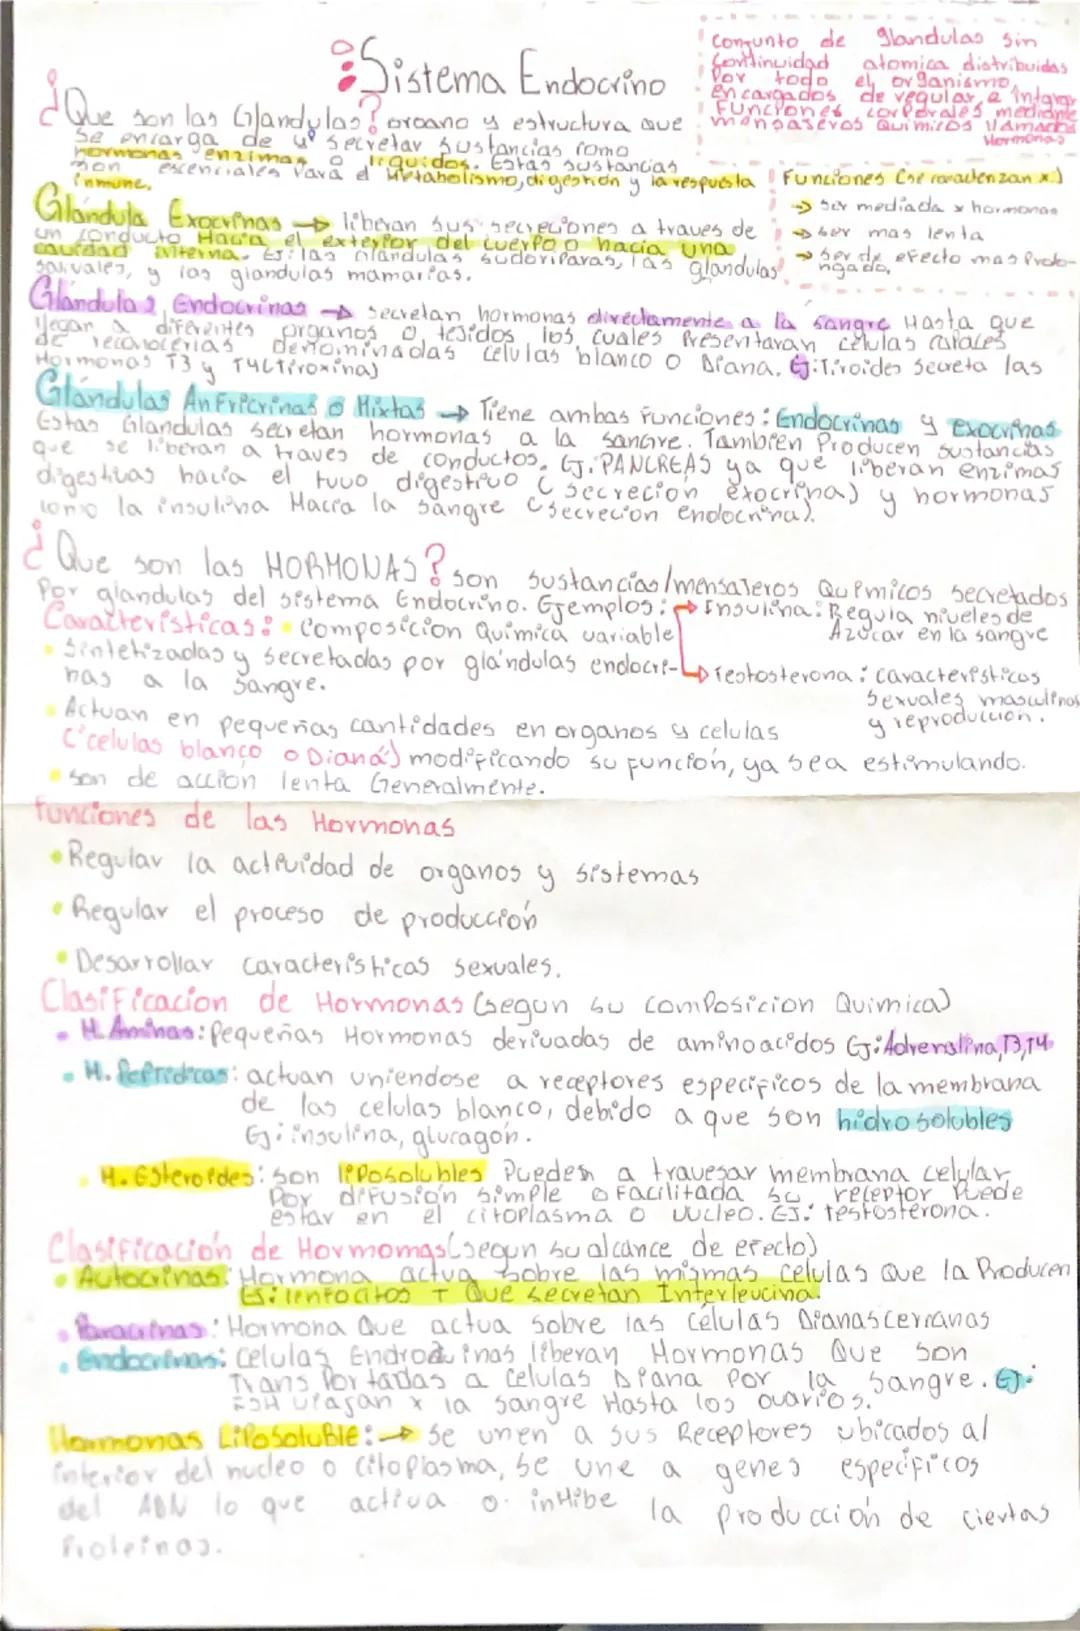 Sistema Endocrino
Conjunto de glandulas sin
Continuidad atomica distribuidas
Por todo el organismo,
encargados de regular e integrar
Funciones corporales mediante
mensajeros Quimicos llamados
Hormonas
¿Que son las Glandulas? organo y estructura que
se encarga de secretar sustancias como
hormonas enzimas o liquidos. Estas sustancias
son escenciales Para el Metabolismo, digestion y la respuesta
inmune.
Funciones (se caracterizan x:)
→ ser mediada x hormonas
→ ser mas lenta
→ ser de efecto mas Prolo-
ngado.
Glándula Exocrinas → liberan sus secreciones a traves de
un conducto Hacia el exterior del cuerpo o hacia una
cavidad interna. Ej: las Glandulas sudoriparas, las glandulas
salivales, y las glandulas mamarias.
Glándulas Endocrinas → secretan hormonas directamente a la sangre Hasta que
llegan a diferentes organos o tejidos los cuales Presentaran celulas capaces
de reconocerlas denominadas celulas blanco o Diana. Ej: Tiroides secreta las
Hormonas T3 y T4 (Tiroxina)
Glándulas Anficrinas o Mixtas → Tiene ambas funciones: Endocrinas y exocrinas
Estas Glandulas secretan hormonas a la sangre. Tambien Producen sustancias
que se liberan a traves de conductos. Ej. PANCREAS ya que liberan enzimas
digestivas hacia el tuvo digestivo (secrecion exocrina) y hormonas
como la insulina Hacia la sangre (secrecion endocrina).
¿Que son las HORMONAS? son sustancias/mensajeros Quimicos secretados
Por glandulas del sistema Endocrino. Ejemplos: → Insulina: Regula niveles de
Azucar en la sangre
→ Testosterona: caracteristicas
sexuales masculinas
y reproduccion.
Caracteristicas: • Composicion Quimica variable
• Sintetizadas y secretadas por glándulas endocri-
nas a la sangre.
• Actuan en pequeñas cantidades en organos y celulas
(celulas blanco o Diana) modificando su función, ya sea estimulando.
• son de accion lenta Generalmente.
Funciones de las Hormonas
• Regular la actividad de organos y sistemas
• Regular el proceso de producción
• Desarrollar caracteristicas sexuales.
Clasificacion de Hormonas (segun su composicion Quimica)
• H. Aminas: Pequeñas Hormonas derivadas de aminoacidos Ej: Adrenalina, T3, T4
• H. Peptidicas: actuan uniendose a receptores especificos de la membrana
de las celulas blanco, debido a que son hidrosolubles
Ej: insulina, glucagón.
• H. Esteroides: son liposolubles Pueden a travesar membrana celular
Por difusión simple o Facilitada su receptor Puede
estar en el citoplasma o nucleo. Ej: testosterona.
Clasificación de Hormomas (segun su alcance de efecto)
• Autocrinas: Hormona actua sobre las mismas celulas que la Producen
Ej: lenfocitos T Que secretan Interleucina.
• Paracrinas: Hormona Que actua sobre las células Dianas cercanas
• Endocrinas: celulas liberan Hormonas Que son
Trans Portadas a celulas Diana Por la sangre. Ej:
FSH viajan x la sangre Hasta los ovarios.
Hormonas Liposoluble: → se unen a sus Receptores ubicados al
interior del nucleo o citoplasma, se une a genes especificos
del ADN lo que activa o inHibe la producción de ciertas
Proteinas.